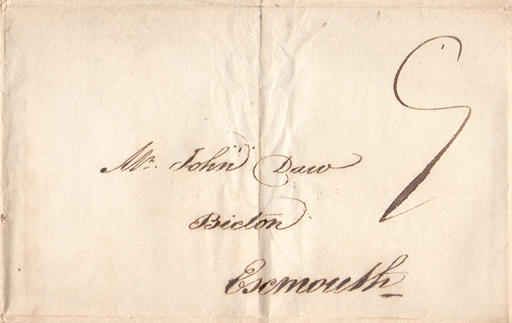 9
Mr. John Daw
Bicton
Exmouth